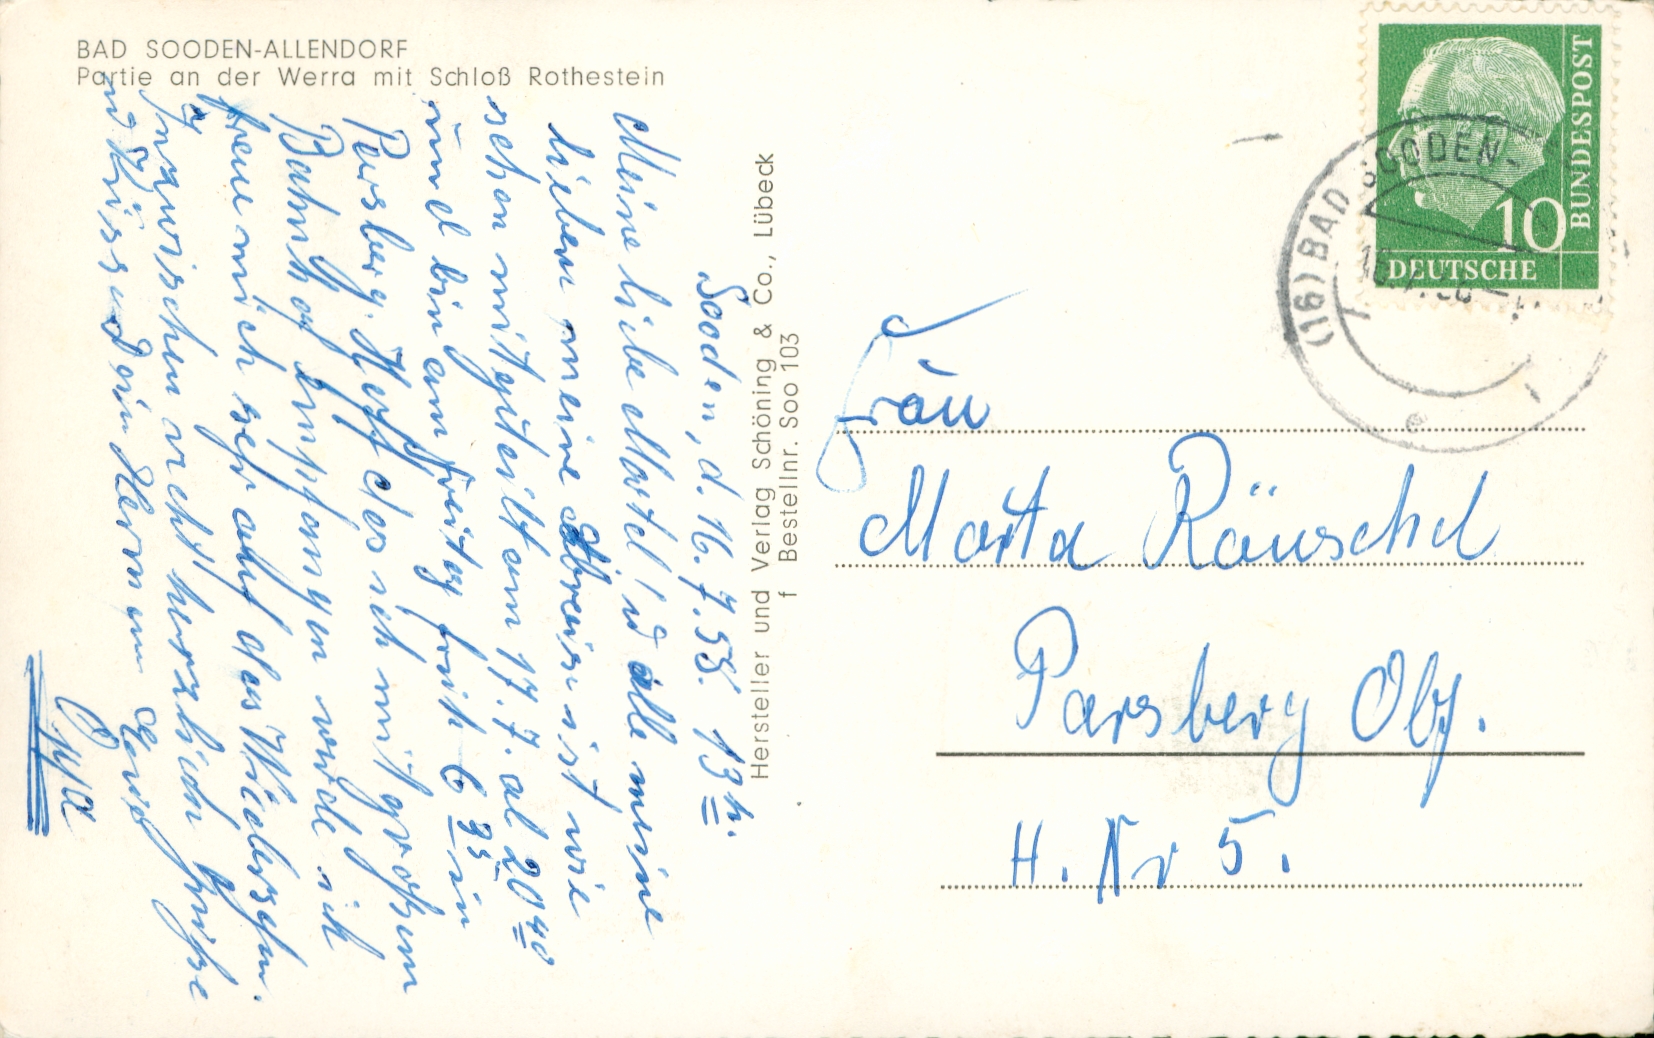 BAD SOODEN-ALLENDORF
Partie an der Werra mit Schloß Rothestein
Sooden, d. 16.7.58. 13 h.
Meine liebe Martel! u alle meine
lieben meine Abreise ist wie
schon mitgeteilt am 17.7. ab 20 40
und bin am Freitag früh 6 35 in
Parsberg. Hoff das ich mit großem
Bahnhof empfangen werde ich
freue mich sehr auf das Wiedersehn.
Inzwischen recht herzliche Grüße
und Küsse
Opa
Hersteller und Verlag Schöning & Co., Lübeck
f Bestellnr. Soo 103
DEUTSCHE
BUNDESPOST
10
(16) BAD SOODEN-
Frau
Marta Räuschel
Parsberg Obf.
H. Nr 5.